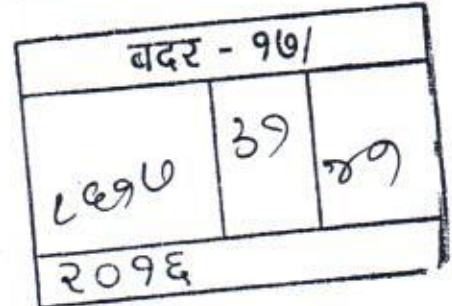 बदर - १७/
८६१७ ३१ ४१
२०१६